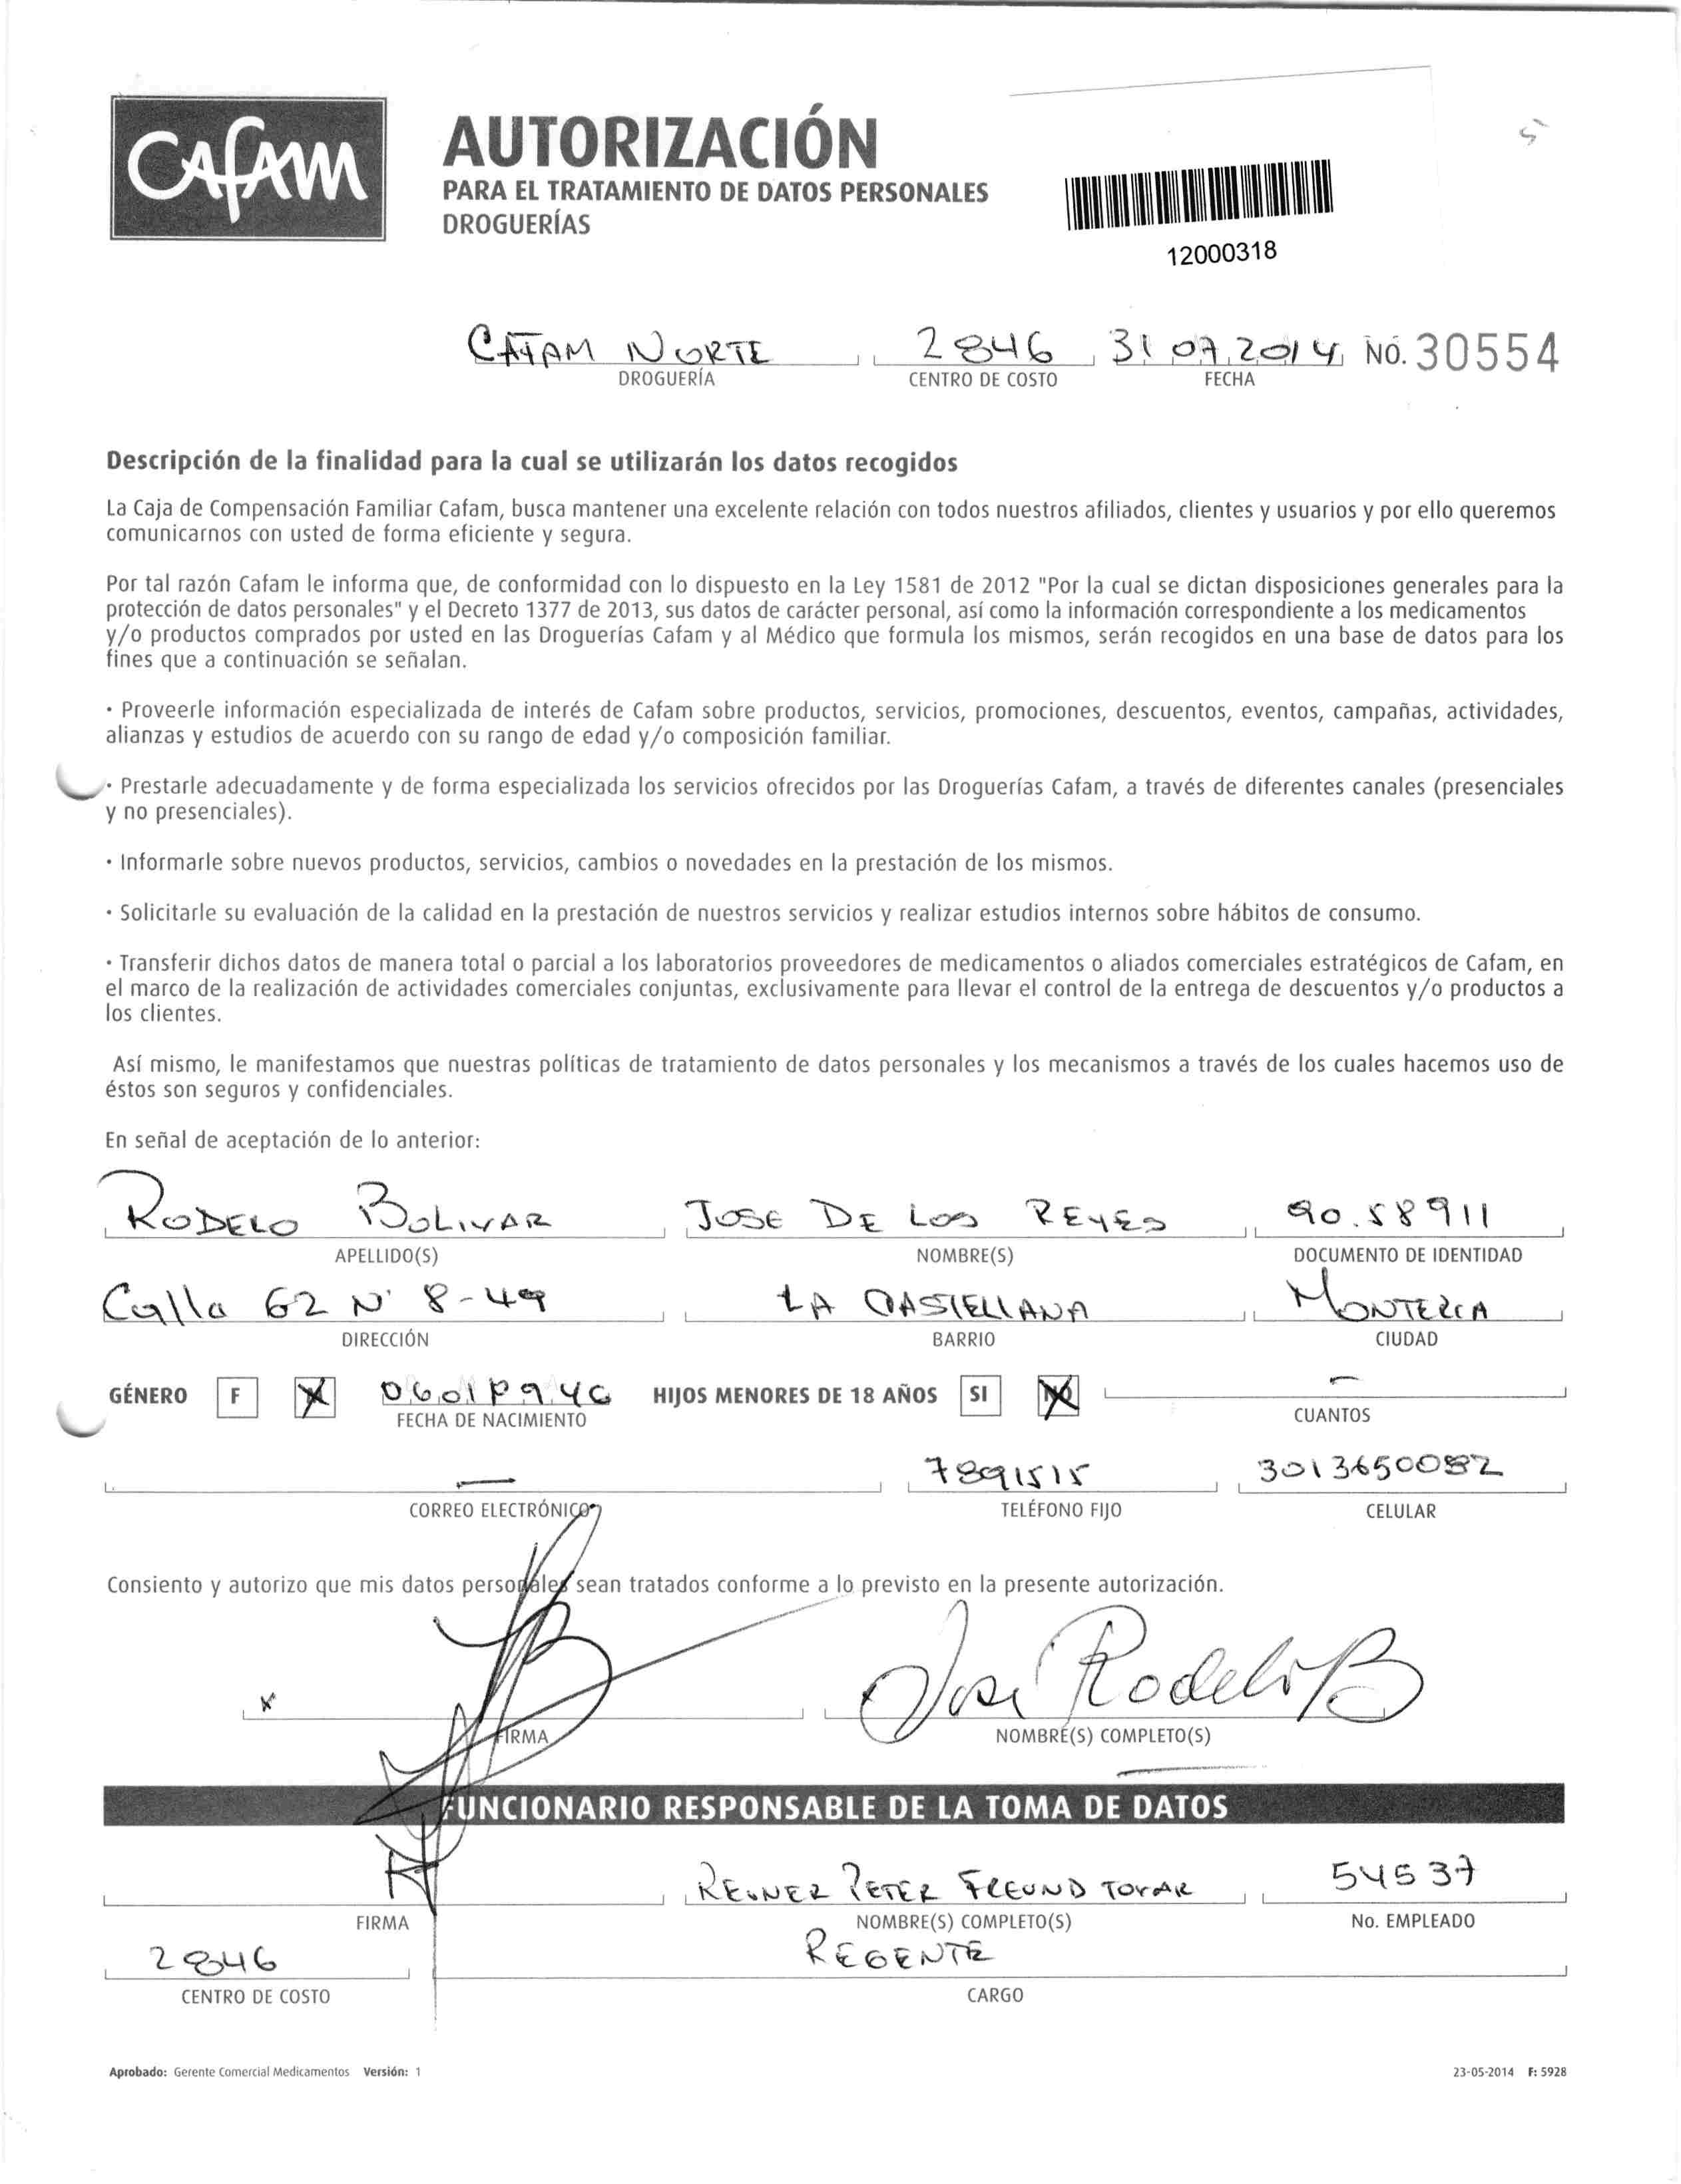 CAfAM
AUTORIZACIÓN
PARA EL TRATAMIENTO DE DATOS PERSONALES
DROGUERÍAS
12000318
CAFAM NORTE 2846 31 07 2014 NO. 30554
DROGUERÍA CENTRO DE COSTO FECHA
Descripción de la finalidad para la cual se utilizarán los datos recogidos
La Caja de Compensación Familiar Cafam, busca mantener una excelente relación con todos nuestros afiliados, clientes y usuarios y por ello queremos
comunicarnos con usted de forma eficiente y segura.
Por tal razón Cafam le informa que, de conformidad con lo dispuesto en la Ley 1581 de 2012 "Por la cual se dictan disposiciones generales para la
protección de datos personales" y el Decreto 1377 de 2013, sus datos de carácter personal, así como la información correspondiente a los medicamentos
y/o productos comprados por usted en las Droguerías Cafam y al Médico que formula los mismos, serán recogidos en una base de datos para los
fines que a continuación se señalan.
· Proveerle información especializada de interés de Cafam sobre productos, servicios, promociones, descuentos, eventos, campañas, actividades,
alianzas y estudios de acuerdo con su rango de edad y/o composición familiar.
· Prestarle adecuadamente y de forma especializada los servicios ofrecidos por las Droguerías Cafam, a través de diferentes canales (presenciales
y no presenciales).
· Informarle sobre nuevos productos, servicios, cambios o novedades en la prestación de los mismos.
· Solicitarle su evaluación de la calidad en la prestación de nuestros servicios y realizar estudios internos sobre hábitos de consumo.
· Transferir dichos datos de manera total o parcial a los laboratorios proveedores de medicamentos o aliados comerciales estratégicos de Cafam, en
el marco de la realización de actividades comerciales conjuntas, exclusivamente para llevar el control de la entrega de descuentos y/o productos a
los clientes.
Así mismo, le manifestamos que nuestras políticas de tratamiento de datos personales y los mecanismos a través de los cuales hacemos uso de
éstos son seguros y confidenciales.
En señal de aceptación de lo anterior:
RODELO BOLIVAR JOSE DE LOS REYES 90.58911
APELLIDO(S) NOMBRE(S) DOCUMENTO DE IDENTIDAD
Calla 62 N° 8-49 LA CASTELLANA MONTERIA
DIRECCIÓN BARRIO CIUDAD
GÉNERO F X HIJOS MENORES DE 18 AÑOS SI NO -
FECHA DE NACIMIENTO CUANTOS
— 7891515 3013650082
CORREO ELECTRÓNICO TELÉFONO FIJO CELULAR
Consiento y autorizo que mis datos personales sean tratados conforme a lo previsto en la presente autorización.
x Jose Rodelo B
FIRMA NOMBRE(S) COMPLETO(S)
FUNCIONARIO RESPONSABLE DE LA TOMA DE DATOS
REINER PETER FREUND TOVAR 54537
FIRMA NOMBRE(S) COMPLETO(S) No. EMPLEADO
2846 REGENTE
CENTRO DE COSTO CARGO
Aprobado: Gerente Comercial Medicamentos Versión: 1 23-05-2014 F: 5928